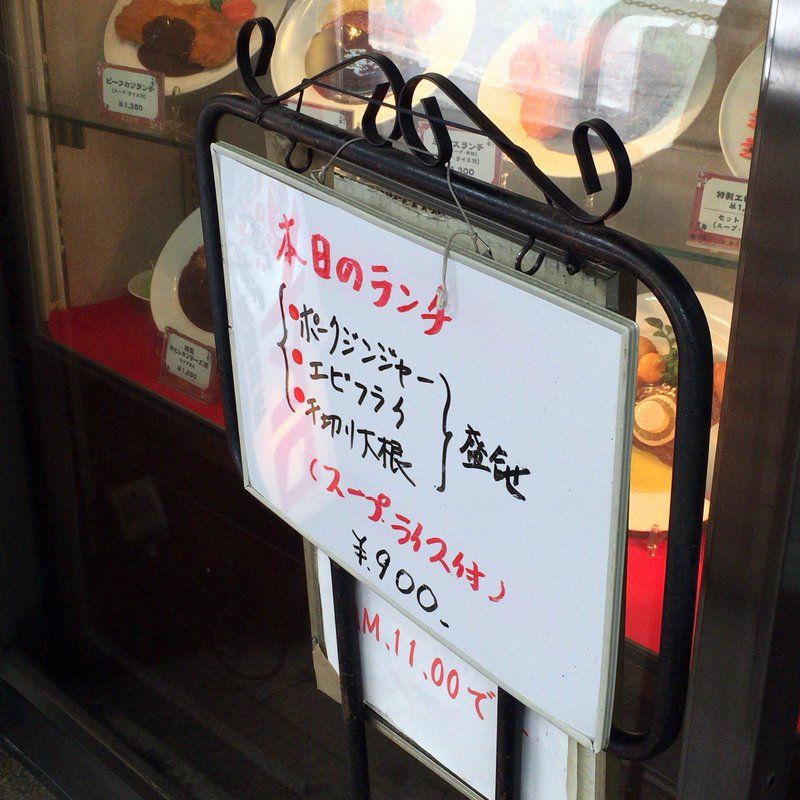 ビーフカツランチ
(スープ・ライス付)
¥1,350
ランチ
ライス付)
特製エ
セット
(スープ・
特製
¥1,550
本日のランチ
・ポークジンジャー
・エビフライ
・千切り大根
盛合せ
(スープ.ライス付)
¥.900-
M.11.00で